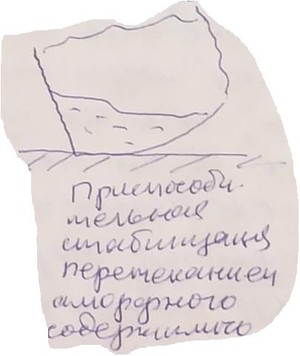 Приспособи-
тельная
стабилизация
перетеканием
аморфного
содержимого